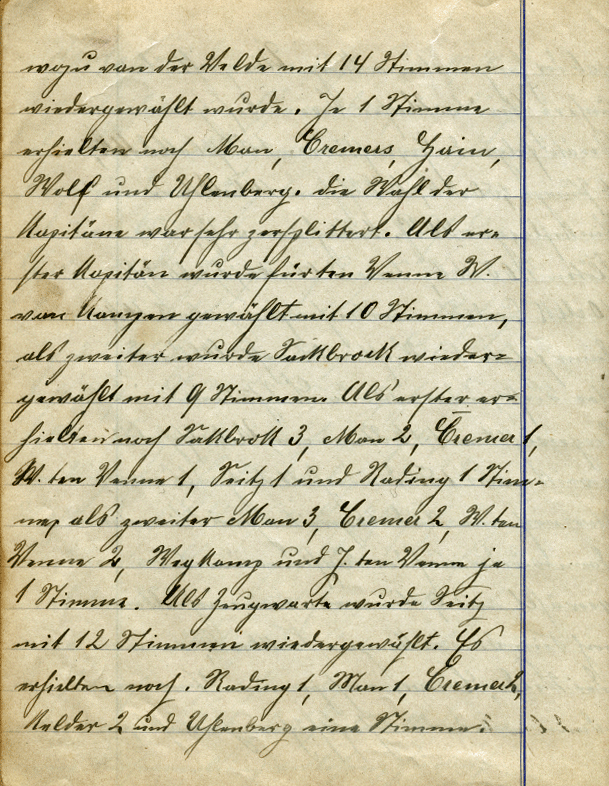 wozu van der Velde mit 14 Stimmen
wiedergewählt wurde. Je 1 Stimme
erhielten noch Man, Cremers, Hain,
Wolf und Uhlenberg. die Wahl der
Kapitäne war sehr zersplittert. Als er-
ster Kapitän wurde für ten Venne W.
van Kampen gewählt mit 10 Stimmen,
als zweiter wurde Sackbrock wieder-
gewählt mit 9 Stimmen. Als erster er-
hielten noch Sakbrok 3, Man 2, Cremer 1,
W. ten Venne 1, Seitz 1 und Rading 1 Stim-
me, als zweiter Man 3, Cremer 2, W. ten
Venne 2, Wegkamp und J. ten Venne je
1 Stimme. Als Zeugwarte wurde Seitz
mit 12 Stimmen wiedergewählt. Es
erhielten noch. Rading 1, Man 1, Cremer 2,
Kelder 2 und Uhlenberg eine Stimme.